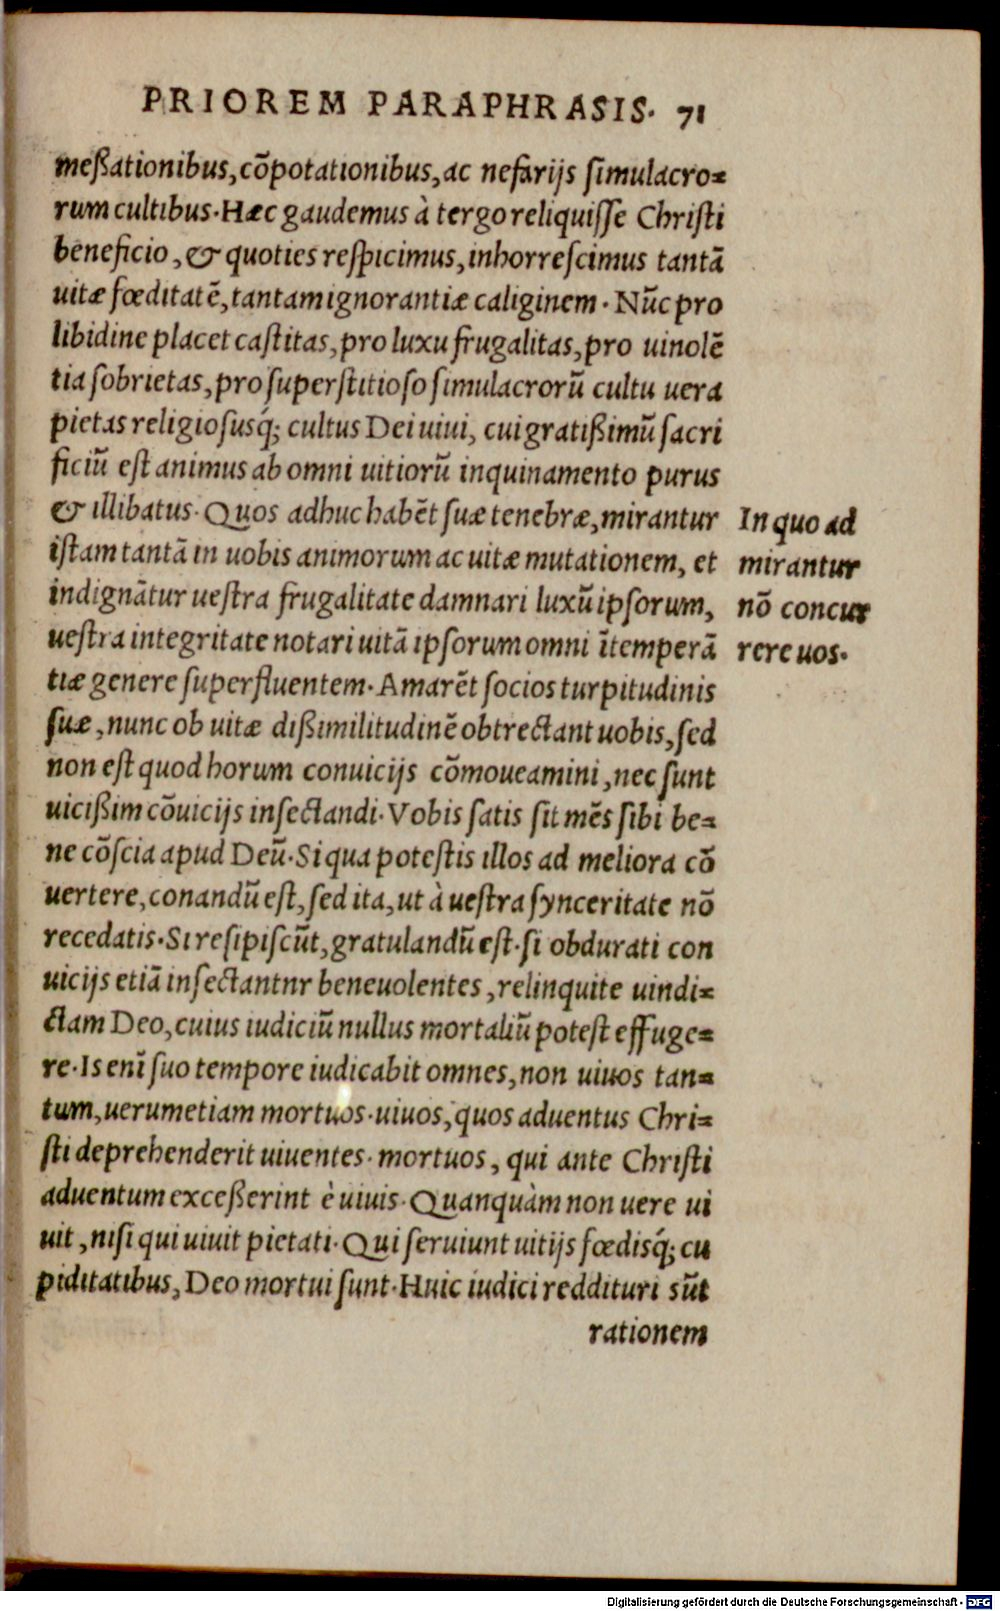 PRIOREM PARAPHRASIS. 71
meßationibus, cōpotationibus, ac nefarijs simulacro-
rum cultibus. Hæc gaudemus à tergo reliquisse Christi
beneficio, & quoties respicimus, inhorrescimus tantā
uitæ fœditatē, tantam ignorantiæ caliginem. Nūc pro
libidine placet castitas, pro luxu frugalitas, pro uinolē
tia sobrietas, pro superstitioso simulacrorū cultu uera
pietas religiosusq́; cultus Dei uiui, cui gratißimū sacri
ficiū est animus ab omni uitiorū inquinamento purus
& illibatus. Quos adhuc habēt suæ tenebræ, mirantur
istam tantā in uobis animorum ac uitæ mutationem, et
indignātur uestra frugalitate damnari luxū ipsorum,
uestra integritate notari uitā ipsorum omni ītemperā
tiæ genere superfluentem. Amarēt socios turpitudinis
suæ, nunc ob uitæ dißimilitudinē obtrectant uobis, sed
non est quod horum conuicijs cōmoueamini, nec sunt
uicißim cōuicijs insectandi. Vobis satis sit mēs sibi be-
ne cōscia apud Deū. Si qua potestis illos ad meliora cō
uertere, conandū est, sed ita, ut à uestra synceritate nō
recedatis. Si resipiscūt, gratulandū est. si obdurati con
uicijs etiā insectantnr beneuolentes, relinquite uindi-
ctam Deo, cuius iudiciū nullus mortaliū potest effuge-
re. Is enī suo tempore iudicabit omnes, non uiuos tan-
tum, uerumetiam mortuos. uiuos, quos aduentus Chri-
sti deprehenderit uiuentes. mortuos, qui ante Christi
aduentum exceßerint è uiuis. Quanquàm non uere ui
uit, nisi qui uiuit pietati. Qui seruiunt uitijs fœdisq́; cu
piditatibus, Deo mortui sunt. Huic iudici reddituri sūt
rationem
In quo ad
mirantur
nō concur
rere uos.
Digitalisierung gefördert durch die Deutsche Forschungsgemeinschaft - DFG